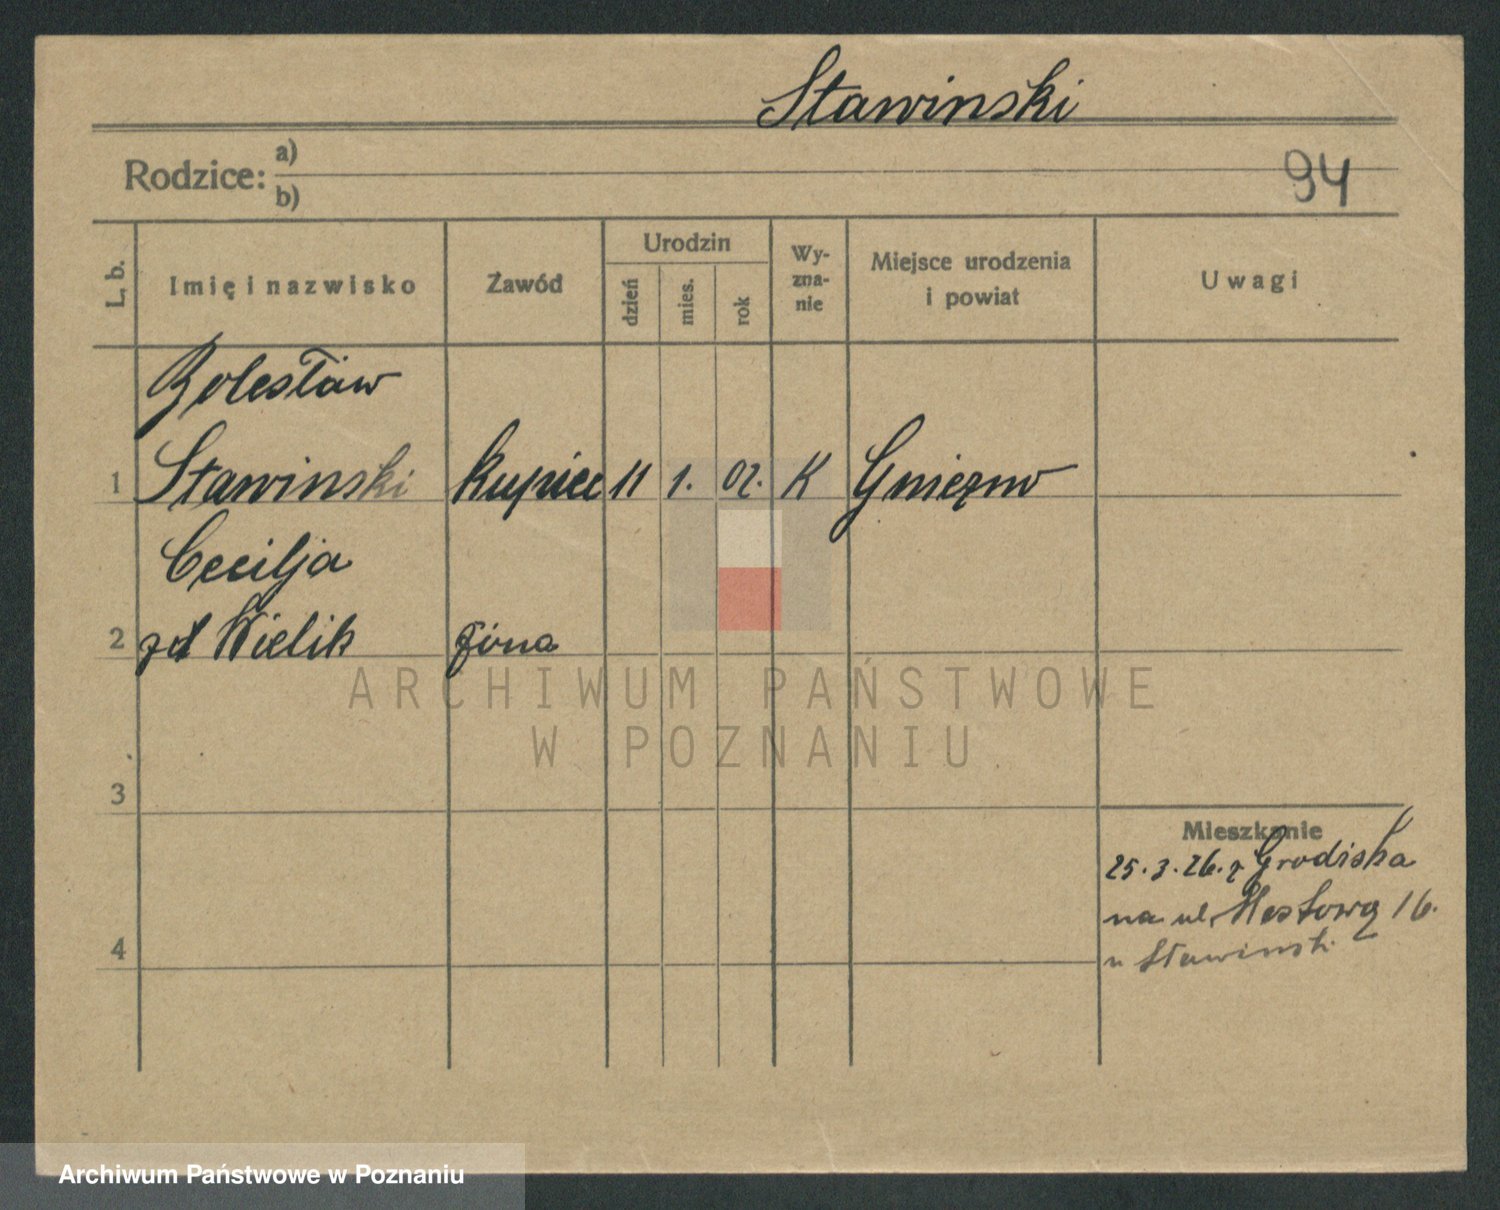 Stawinski
Rodzice: a)
b)
94
L. b. Imię i nazwisko Zawód Urodzin dzień mies. rok Wy-zna-nie Miejsce urodzenia i powiat Uwagi
Bolesław
1 Stawinski kupiec 11 1. 02. K Gniezno
Cecilja
2 zd Wielik żona
3
Mieszkanie
25.3.26. z Grodziska
na ul. 16.
4 u Stawinski
ARCHIWUM PAŃSTWOWE
W POZNANIU
Archiwum Państwowe w Poznaniu